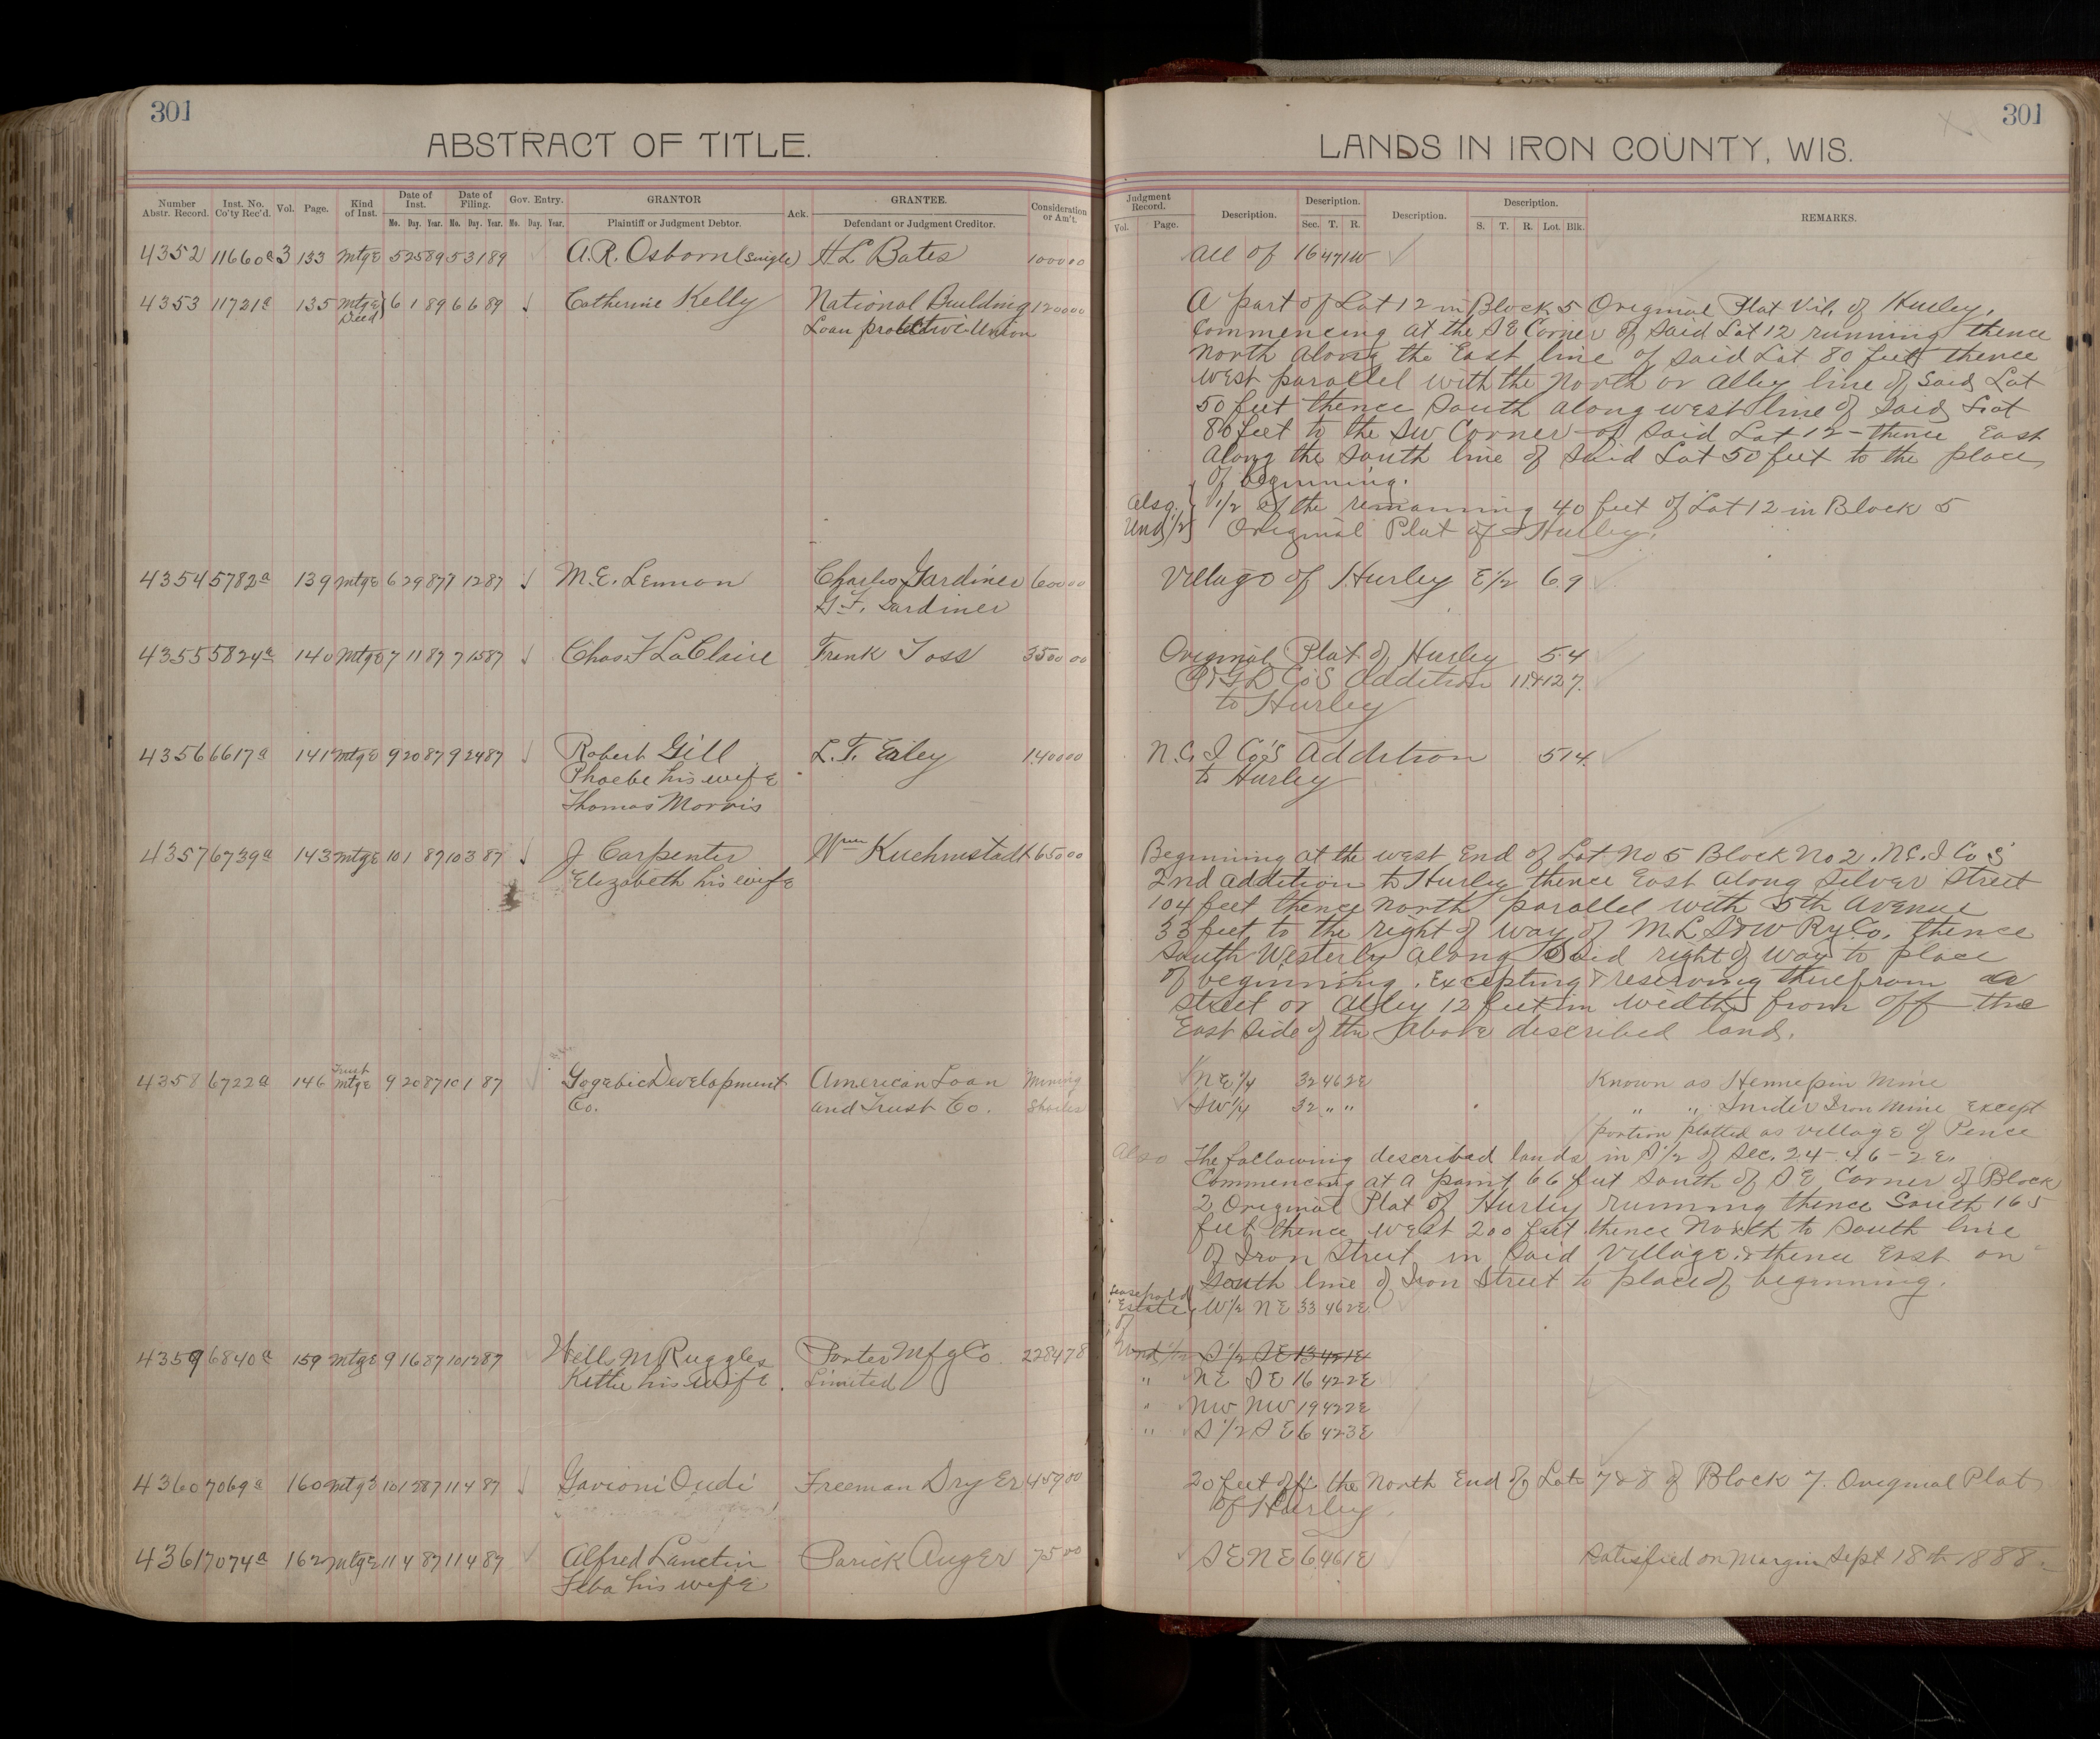 301
ABSTRACT OF TITLE.
Number Abstr. Record. Inst. No. Co'ty Rec'd. Vol. Page. Kind of Inst. Date of Inst. Mo. Day. Year. Date of Filing. Mo. Day. Year. Gov. Entry. Mo. Day. Year. GRANTOR Plaintiff or Judgment Debtor. Ack. GRANTEE. Defendant or Judgment Creditor. Consideration or Am't.
4352 11660a 3 133 Mtge 5 25 89 5 31 89 A. R. Osborn (single) H L Bates 1000 00
4353 11721a 135 Mtge 6 1 89 6 6 89 Catherine Kelly National Building 1200 00
Deed Loan protective Union
4354 5782a 139 Mtge 6 29 87 7 12 87 M. E. Lennon Charles Gardiner 600 00
G. F. Gardiner
4355 5824a 140 Mtge 7 11 87 7 15 87 Chas. F LaClaire Frank Foss 3500 00
4356 6617a 141 Mtge 9 20 87 9 24 87 Robert Gill L. T. Eiley 1400 00
Phoebe his wife
Thomas Morris
4357 6739a 143 Mtge 10 1 87 10 3 87 J Carpenter Wm Kuehmstadt 650 00
Elizabeth his wife
Trust
4358 6722a 146 Mtge 9 20 87 10 1 87 Gogebic Development American Loan Mining
Co. and Trust Co. Shares
4359 6840a 159 Mtge 9 16 87 10 12 87 Wells M Ruggles Porter Mfg Co 2284 78
Kittie his wife. Limited
4360 7069a 160 Mtge 10 12 87 11 4 87 Gavioni Oudi Freeman Dryer 459 00
4361 7074a 162 Mtge 11 4 87 11 4 87 Alfred Lanctin Parick Auger 75 00
Feba his wife
301
LANDS IN IRON COUNTY, WIS.
Judgment Record. Vol. Page. Description. Description. Sec. T. R. Description. Description. S. T. R. Lot. Blk. REMARKS.
All of 16 47 1W
A part of Lot 12 in Block 5 Original Plat Vil. of Hurley.
Commencing at the SE Corner of said Lot 12 running thence
North along the East line of said Lot 80 feet thence
west parallel with the North or Alley line of said Lot
50 feet thence South along west line of said Lot
80 feet to the SW Corner of said Lot 12 - thence East
along the South line of said Lot 50 feet to the place
of beginning.
also 1/2 of the remaining 40 feet of Lot 12 in Block 5
Und 1/2 Original Plat of Hurley.
Village of Hurley E 1/2 6 9
Original Plat of Hurley 5 4
Co's Addition 11&12 7.
to Hurley
N. C. I Co's Addition 5 14
to Hurley
Beginning at the west End of Lot No 5 Block No 2. N.C. I Co's
2nd addition to Hurley thence East along Silver Street
104 feet thence North parallel with 5th Avenue
33 feet to the right of way of M. L. S & W Ry Co. thence
South Westerly along said right of way to place
of beginning. Excepting & reserving therefrom a
street or alley 12 feet in width from off the
East side of the above described land.
NE 1/4 32 46 2E Known as Hennepin Mine
SW 1/4 32 " " " " Snider Iron Mine Except
portion platted as village of Pence
Also The following described lands in S 1/2 of Sec. 24-46-2E.
Commencing at a point 66 feet South of SE Corner of Block
2 Original Plat of Hurley running thence South 165
feet thence west 200 feet thence North to South line
of Iron Street in said Village & thence East on
South line of Iron Street to place of beginning.
Leasehold
Estate W 1/2 NE 33 46 2E
of
Und 1/2 S 1/2 SE 13 42 1E
" NE SE 16 42 2E
" NW NW 19 42 2E
" S 1/2 SE 6 42 3E
20 feet off the North End of Lots 7 & 8 of Block 7. Original Plat
of Hurley.
SE NE 6 46 1E Satisfied on Margin Sept 18th 1888.